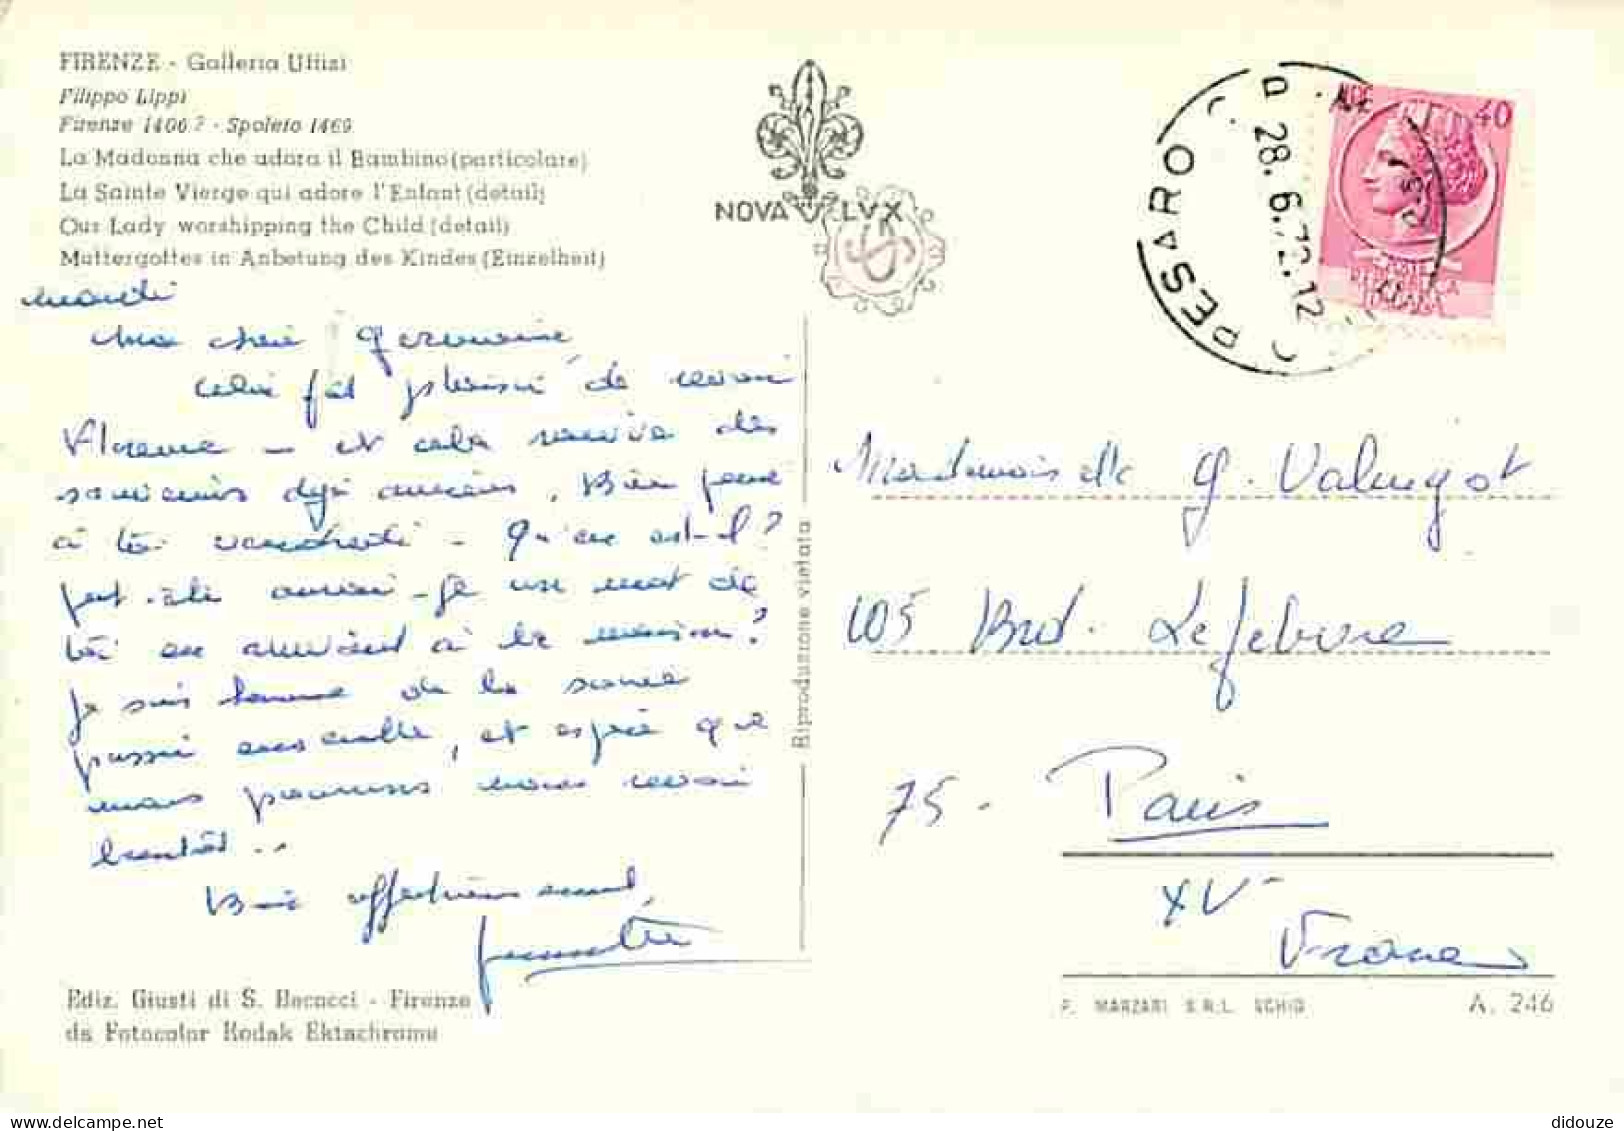 FIRENZE - Galleria Uffizi
Filippo Lippi
Firenze 1406? - Spoleto 1469
La Madonna che adora il Bambino (particolare)
La Sainte Vierge qui adore l'Enfant (detail)
Our Lady worshipping the Child (detail)
Muttergottes in Anbetung des Kindes (Einzelheit)
NOVA LVX
PESARO
28.6.72.12
40
mardi
Ma chère Germaine,
Cela fait plaisir de revoir
Florence - et cela ravive des
souvenirs déjà anciens. Bien pensé
à toi vendredi - Qu'en est-il?
peut-être aurai-je un mot de
toi en arrivant à la maison?
Je suis heureuse de la soirée
passée ensemble, et espère que
nous pourrons nous revoir
bientôt..
Bien affectueusement,
Mademoiselle G. Valengot
105 Brd. Lefebvre
75 - Paris
XV
France
Riproduzione vietata
Ediz. Giusti di S. Becocci - Firenze
da Fotocolor Kodak Ektachrome
F. MARZARI S.R.L. SCHIO
A. 246
didouze